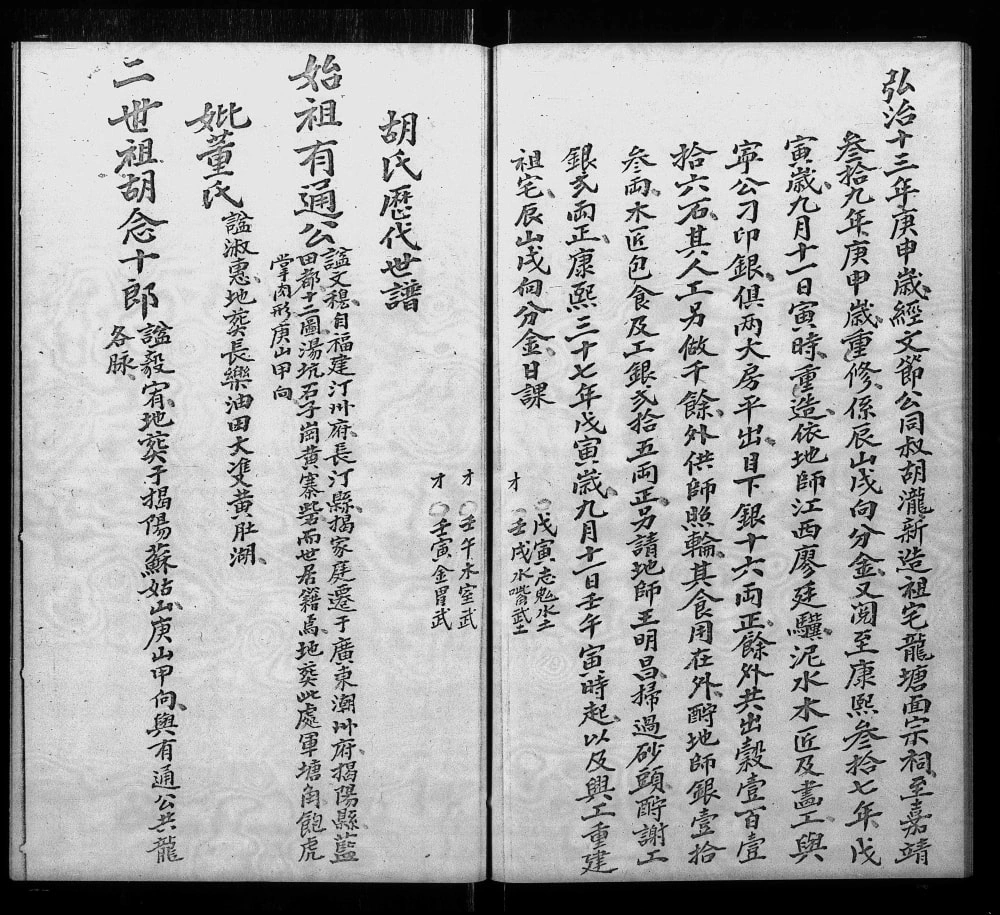 弘治十三年庚申歲經文節公同叔胡瀧新造祖宅龍塘面宗祠至嘉靖
叁拾九年庚申歲重修係辰山戌向分金又閱至康熙叁拾七年戊
寅歲九月十一日寅時重造依地師江西廖廷驥泥水木匠及畫工與
寜公刁印銀俱兩大房平出目下銀十六兩正餘外共出穀壹百壹
拾六石其人工另做千餘外供師照輪其食用在外酧地師銀壹拾
叁兩木匠包食及工銀弍拾五兩正另請地師王明昌掃過砂頭酧謝工
銀弍兩正康熙三十七年戊寅歲九月十一日壬午寅時起以及興工重建
祖宅辰山戌向分金日課
才 〇戊寅志鬼水土
〇壬戌水嘴武土
才 〇壬午木室武
才 〇壬寅金胃武
胡氏歷代世譜
始祖有通公
諡文穆自福建汀州府長汀縣揭家庭遷于廣東潮州府揭陽縣藍
田都十二圖湯坑石子崗黃寨砦而世居籍焉地葬此處軍塘角飽虎
掌肉形庚山甲向
妣董氏 諡淑惠地葬長樂油田大進黃肚湖
二世祖胡念十郎
諡毅宥地葬于揭陽蘇姑山庚山甲向與有通公共龍
各脉